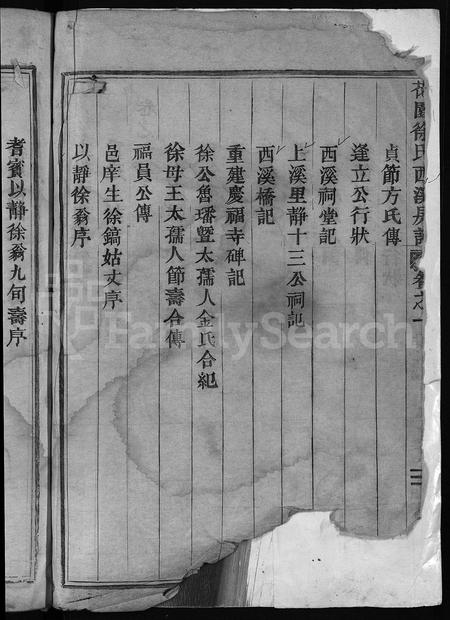 徐氏西溪房譜 卷之一
三
貞節方氏傳
逢立公行狀
西溪祠堂記
上溪里靜十三公祠記
西溪橋記
重建慶福寺碑記
徐公魯璠暨太孺人金氏合紀
徐母王太孺人節壽合傳
福員公傳
邑庠生徐鎬姑丈序
以靜徐翁序
耆賓以靜徐翁九旬壽序
FamilySearch